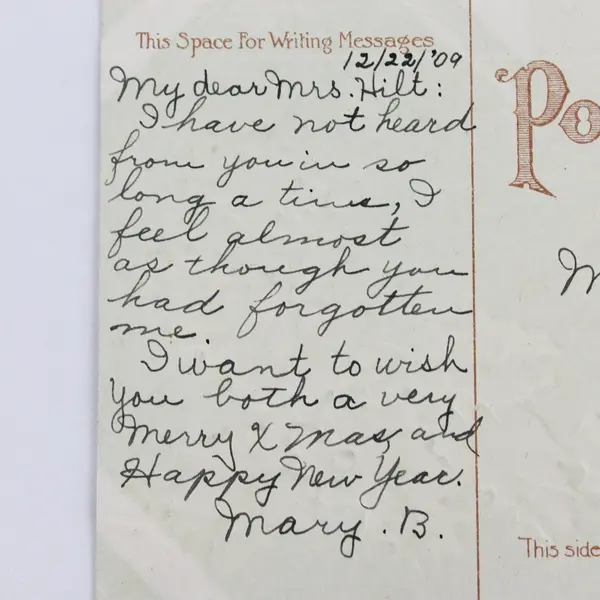 This Space For Writing Messages
12/22/'09
My dear Mrs. Hilt:
I have not heard
from you in so
long a time, I
feel almost
as though you
had forgotten
me.
I want to wish
you both a very
Merry X Mas, and
Happy New Year.
Mary. B.
Po
M
This side